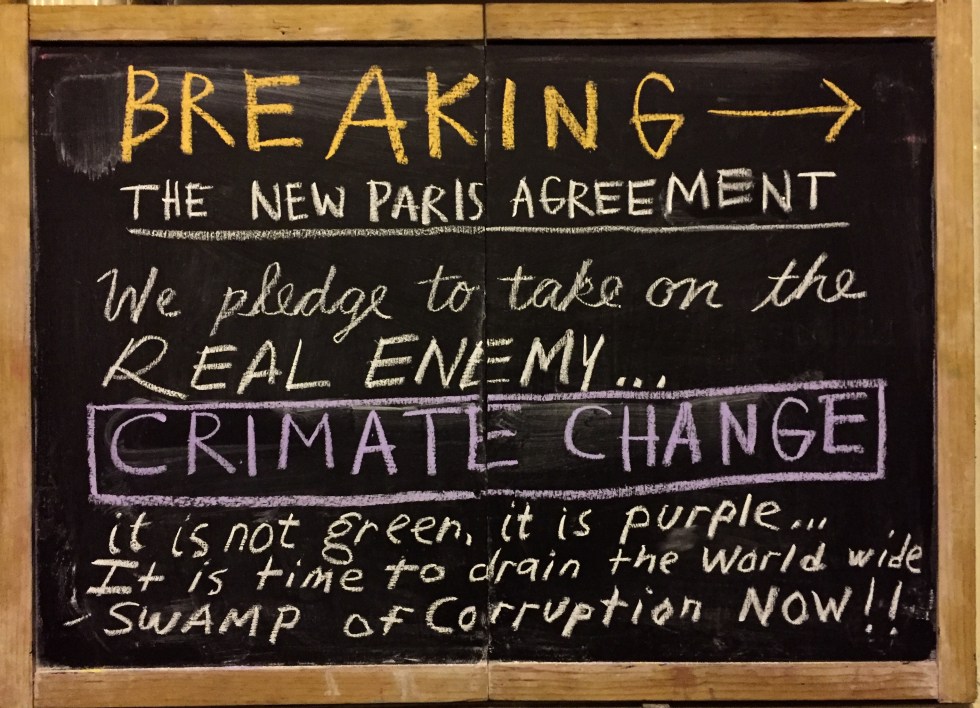 BREAKING →
THE NEW PARIS AGREEMENT
We pledge to take on the
REAL ENEMY...
CRIMATE CHANGE
it is not green, it is purple...
It is time to drain the World wide
SWAMP of Corruption NOW!!